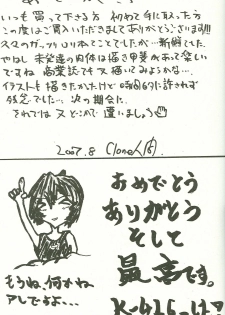 いつも買って下さる方 初めて手に取った方
この度はご買入いただきましてありがとうございます!!!
やはし 未発達の肉体は描き甲斐があって楽しい
ですね 商業誌でも又描いてみようかな…。
イラストも描きたかたけど時間的に許されず
残念でした… 次の機会に。
それでは 又どこかで逢いましょう
2007.8 Clone人間
おめでとう
ありがとう
そして
最高です。
もうね、何かね
アレですよ…